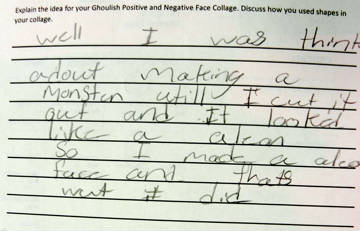 Explain the idea for your Ghoulish Positive and Negative Face Collage. Discuss how you used shapes in
your collage.
well I was think
adout making a
Monster utill I cut it
out and It looked
like a alean
So I made a alea
face and thats
waht It did